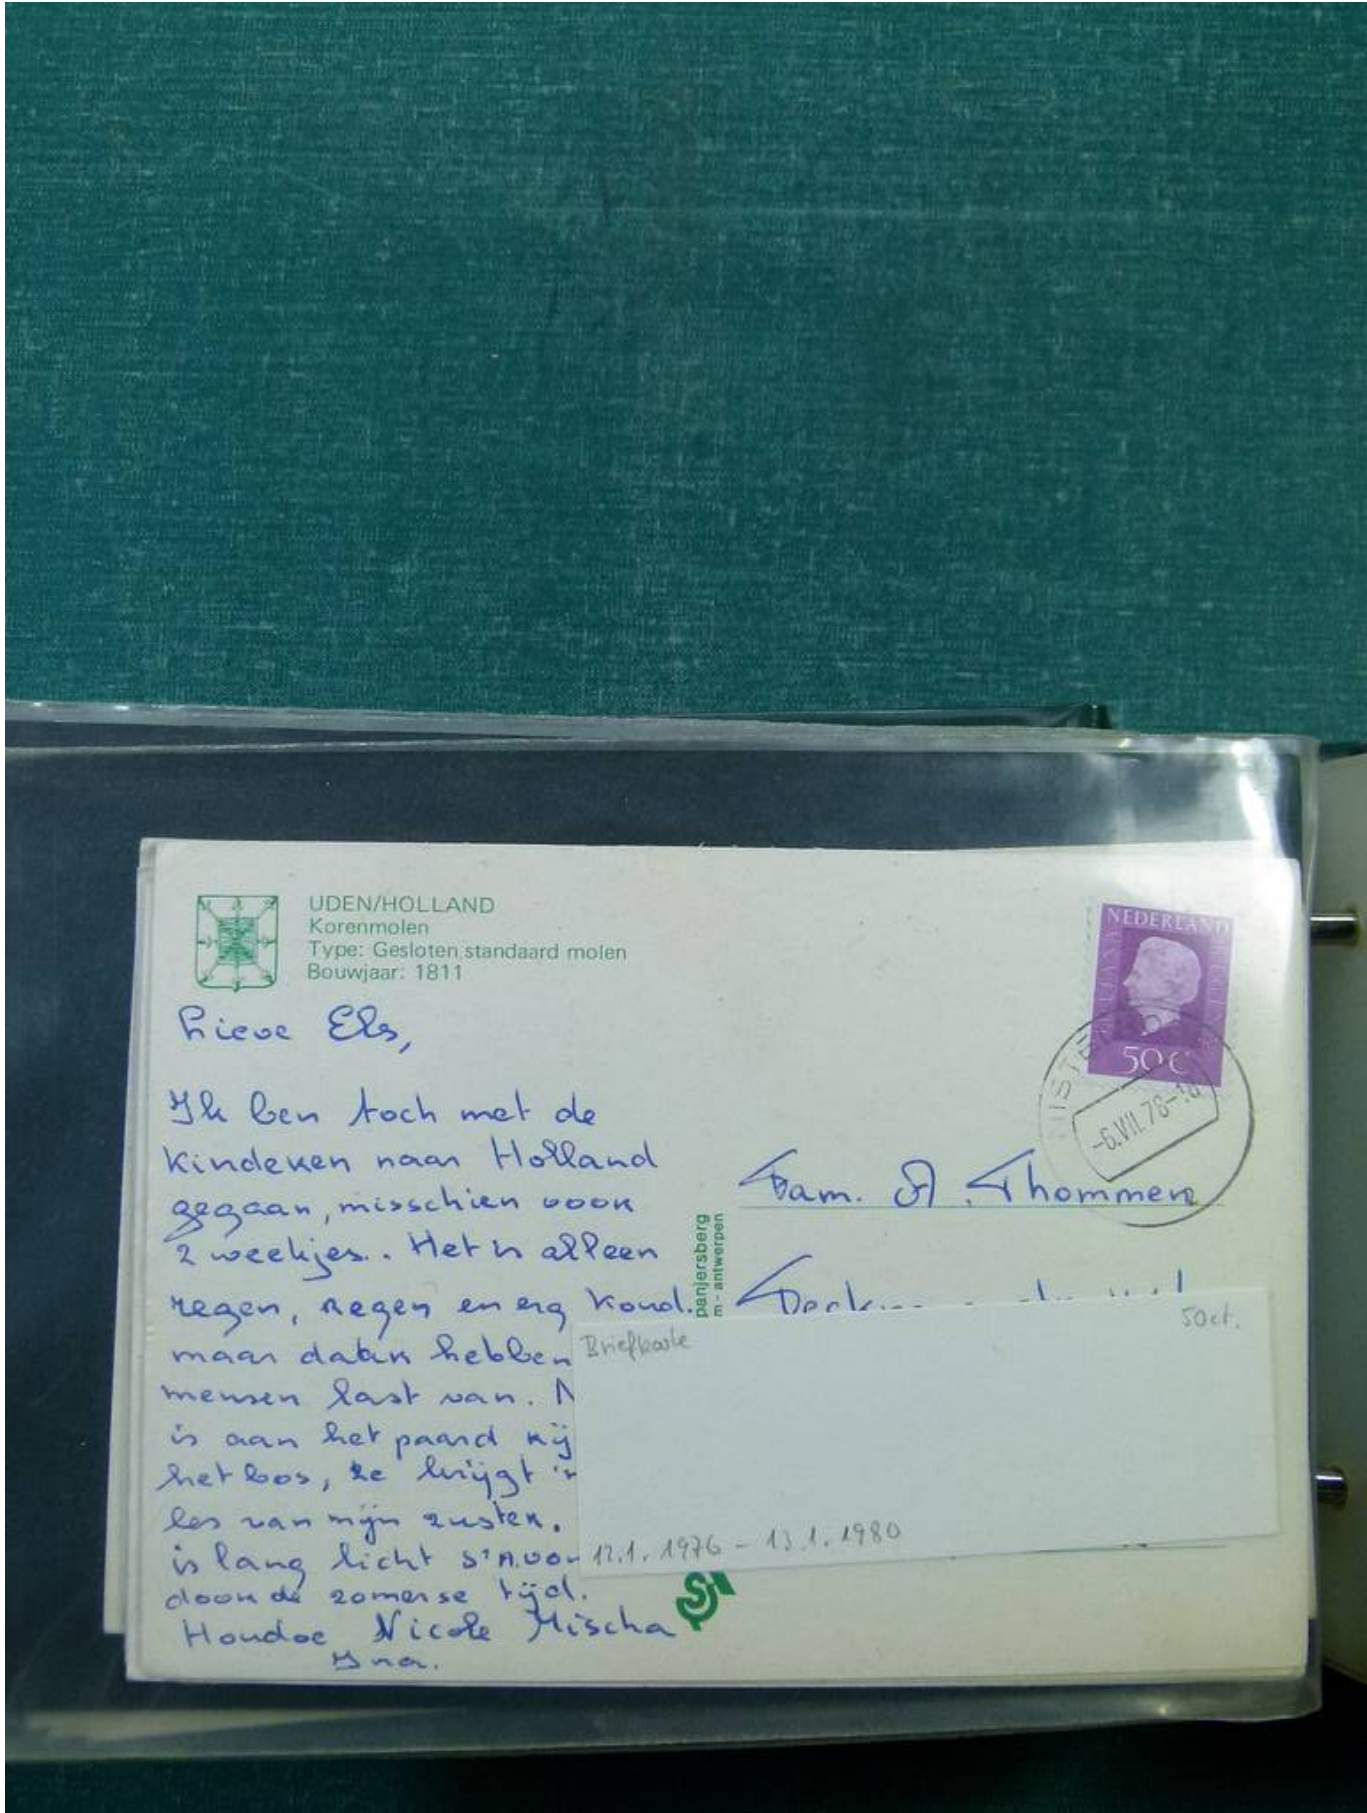 UDEN/HOLLAND
Korenmolen
Type: Gesloten standaard molen
Bouwjaar: 1811
NEDERLAND
50 c
-6.VII.78-18
Lieve Els,
Ik ben toch met de
kinderen naar Holland
gegaan, misschien voor
2 weekjes.. Het is alleen
regen, regen en erg koud.
maar hebben
mensen last van.
is aan het paard rij
het bos, ze krijgt
les van mijn zuster.
is lang licht s'Avo
door de zomerse tijd.
Houdoe Nicole Mischa
Ina.
panjersberg
m - antwerpen
Fam. A. Thommen
Briefkaart
50ct.
12.1.1976 - 13.1.1980